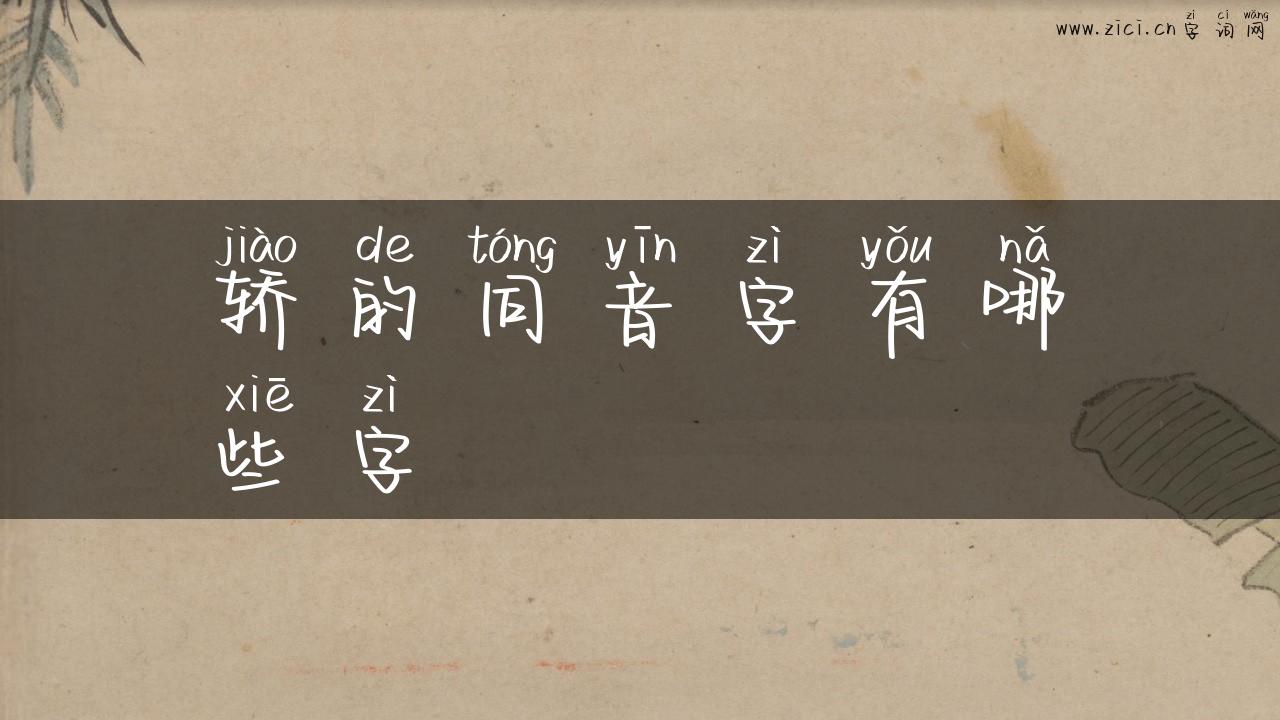 zì cí wǎng
www.zici.cn 字词网
jiào de tóng yīn zì yǒu nǎ
轿的同音字有哪
xiē zì
些字